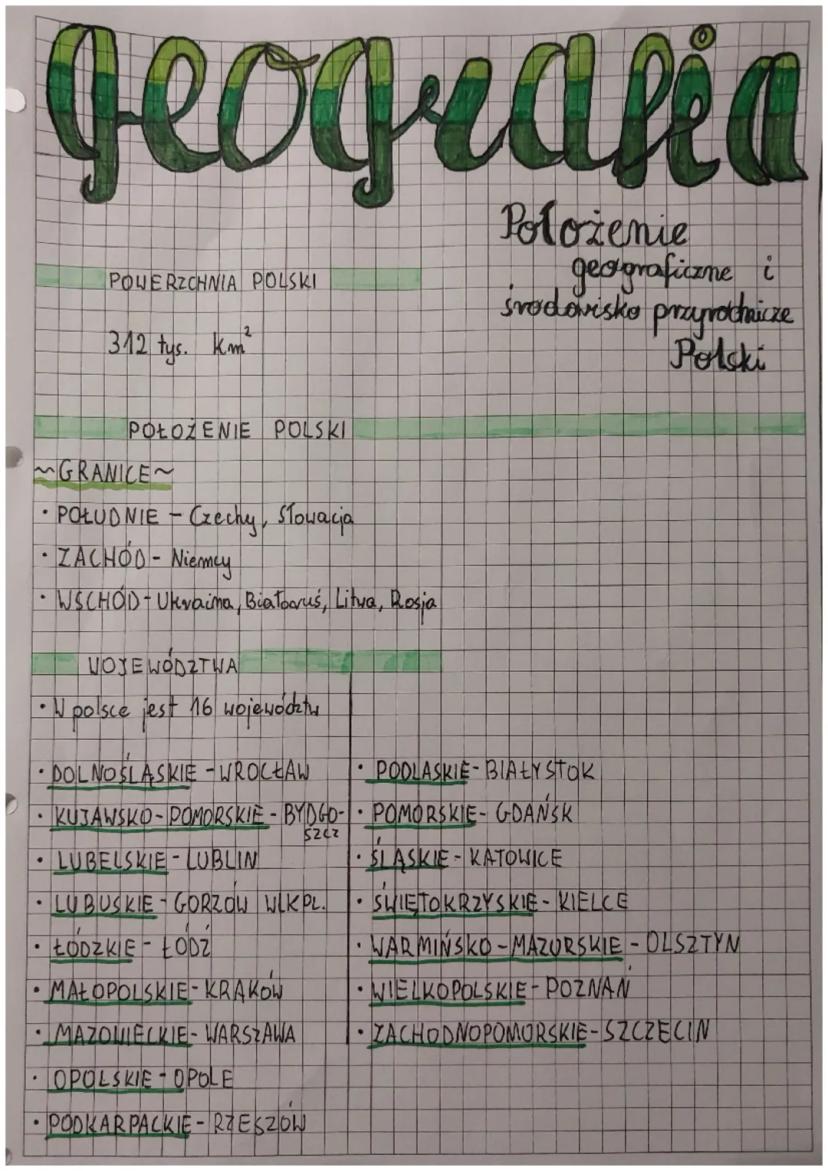 geografia
Położenie
geograficzne i
środowisko przyrodnicze
Polski
POWIERZCHNIA POLSKI
312 tys. km²
POŁOŻENIE POLSKI
~GRANICE~
• POŁUDNIE - Czechy, Słowacja
• ZACHÓD - Niemcy
• WSCHÓD - Ukraina, Białoruś, Litwa, Rosja
WOJEWÓDZTWA
• W polsce jest 16 województw
• DOLNOŚLĄSKIE - WROCŁAW
• KUJAWSKO - POMORSKIE - BYDGO-
SZCZ
• LUBELSKIE - LUBLIN
• LUBUSKIE - GORZÓW WLKPL.
• ŁÓDZKIE - ŁÓDŹ
• MAŁOPOLSKIE - KRAKÓW
• MAZOWIECKIE - WARSZAWA
• OPOLSKIE - OPOLE
• PODKARPACKIE - RZESZÓW
• PODLASKIE - BIAŁYSTOK
• POMORSKIE - GDAŃSK
• ŚLĄSKIE - KATOWICE
• ŚWIĘTOKRZYSKIE - KIELCE
• WARMIŃSKO - MAZURSKIE - OLSZTYN
• WIELKOPOLSKIE - POZNAŃ
• ZACHODNOPOMORSKIE - SZCZECIN